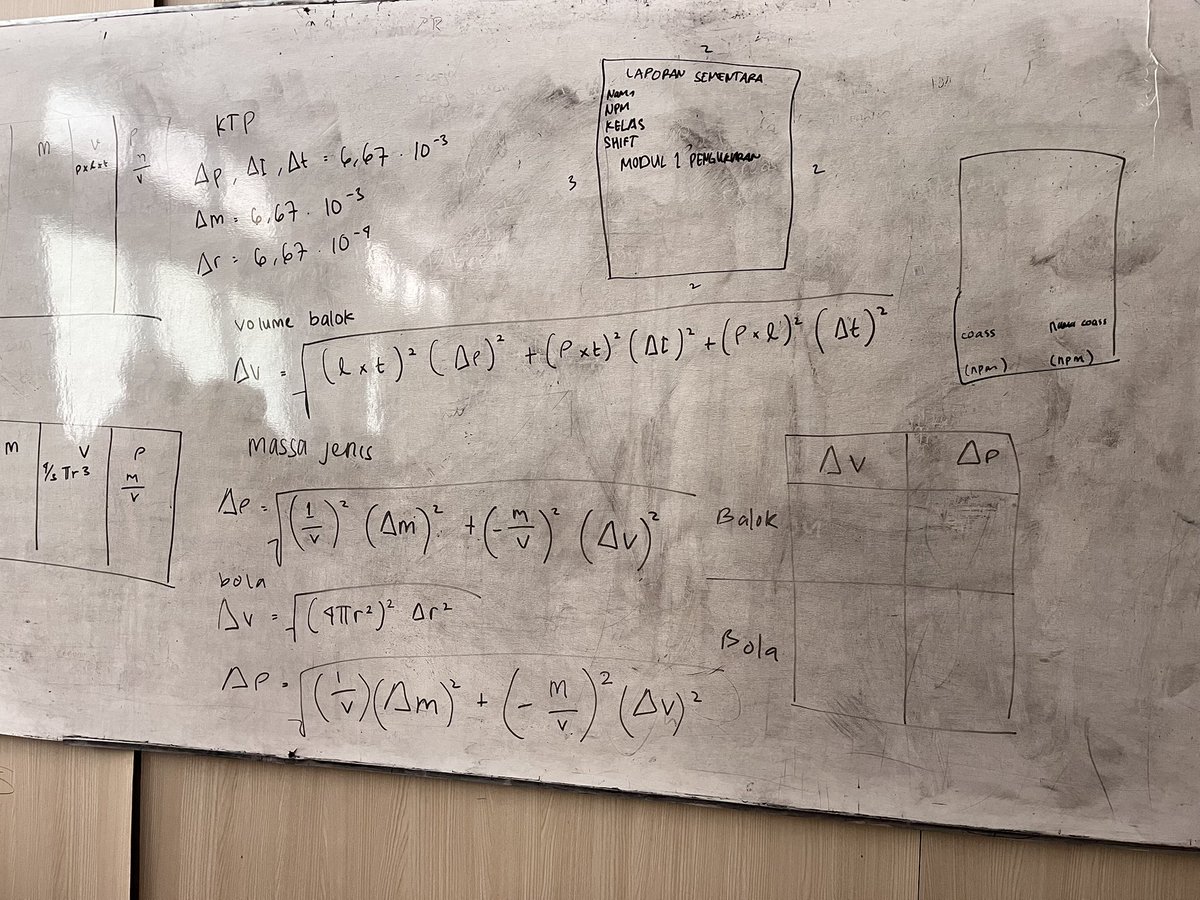 m V ρ
pxlxt m/v
KTP
Δp, ΔI, Δt = 6,67 · 10⁻³
Δm = 6,67 · 10⁻³
Δr = 6,67 · 10⁻⁴
volume balok
Δv = √(l x t)² (Δp)² + (p x t)² (ΔI)² + (p x l)² (Δt)²
m V ρ
4/3 πr3 m/v
massa jenis
Δρ = √(1/v)² (Δm)² + (-m/v)² (Δv)²
bola
Δv = √(4πr²)² Δr²
Δρ = √(1/v)(Δm)² + (-m/v)² (Δv)²
2
LAPORAN SEMENTARA
Nama
NPM
KELAS
SHIFT
MODUL 1 PENGUKURAN
3
2
2
coass Nama coass
(npm) (npm)
Δv Δρ
Balok
Bola